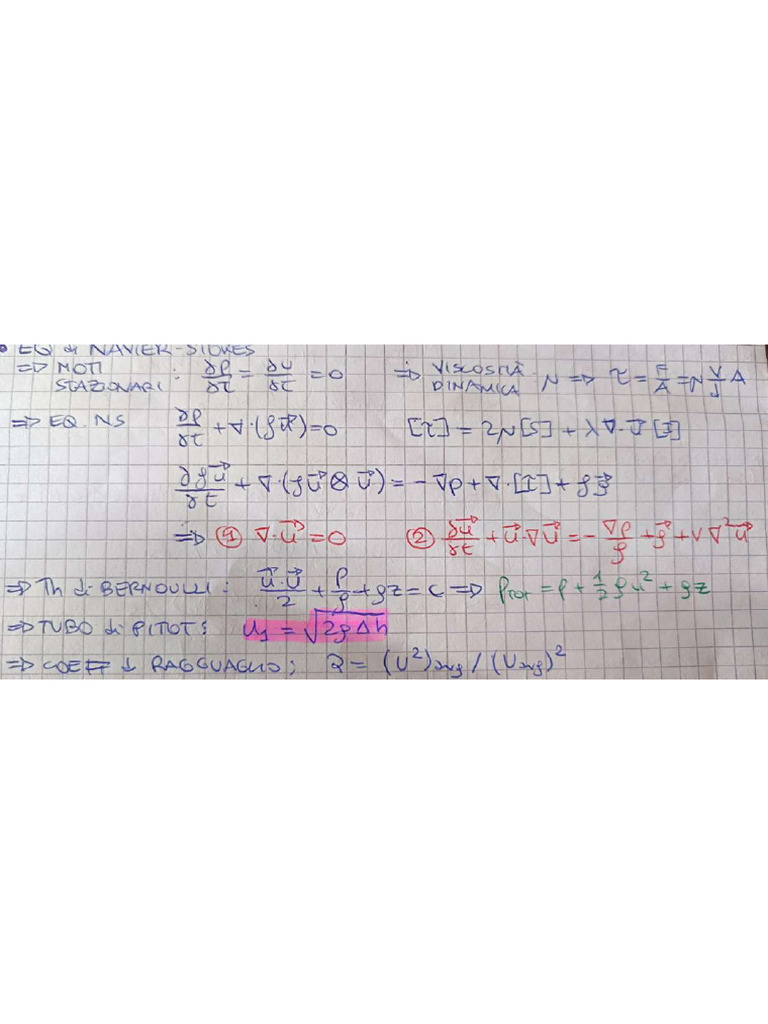 • EQ di NAVIER-STOKES
⇒ MOTI STAZIONARI : ∂ρ/∂t = ∂u/∂t = 0 ⇒ VISCOSITÀ DINAMICA μ ⇒ τ = F/A = μ V/δ A
⇒ EQ. NS ∂ρ/∂t + ∇·(ρu⃗) = 0 [τ] = 2μ[S] + λ∇·u⃗[I]
∂ρu⃗/∂t + ∇·(ρu⃗⊗u⃗) = -∇p + ∇·[τ] + ρg⃗
⇒ ① ∇·u⃗ = 0 ② ∂u⃗/∂t + u⃗·∇u⃗ = -∇p/ρ + g⃗ + ν∇²u⃗
⇒ Th di BERNOULLI : u⃗·u⃗/2 + p/ρ + gz = c ⇒ Ptot = p + 1/2 ρu² + gz
⇒ TUBO di PITOT : u₁ = √2gΔh
⇒ COEFF di RAGGUAGLIO ; α = (U²)avg / (Uavg)²